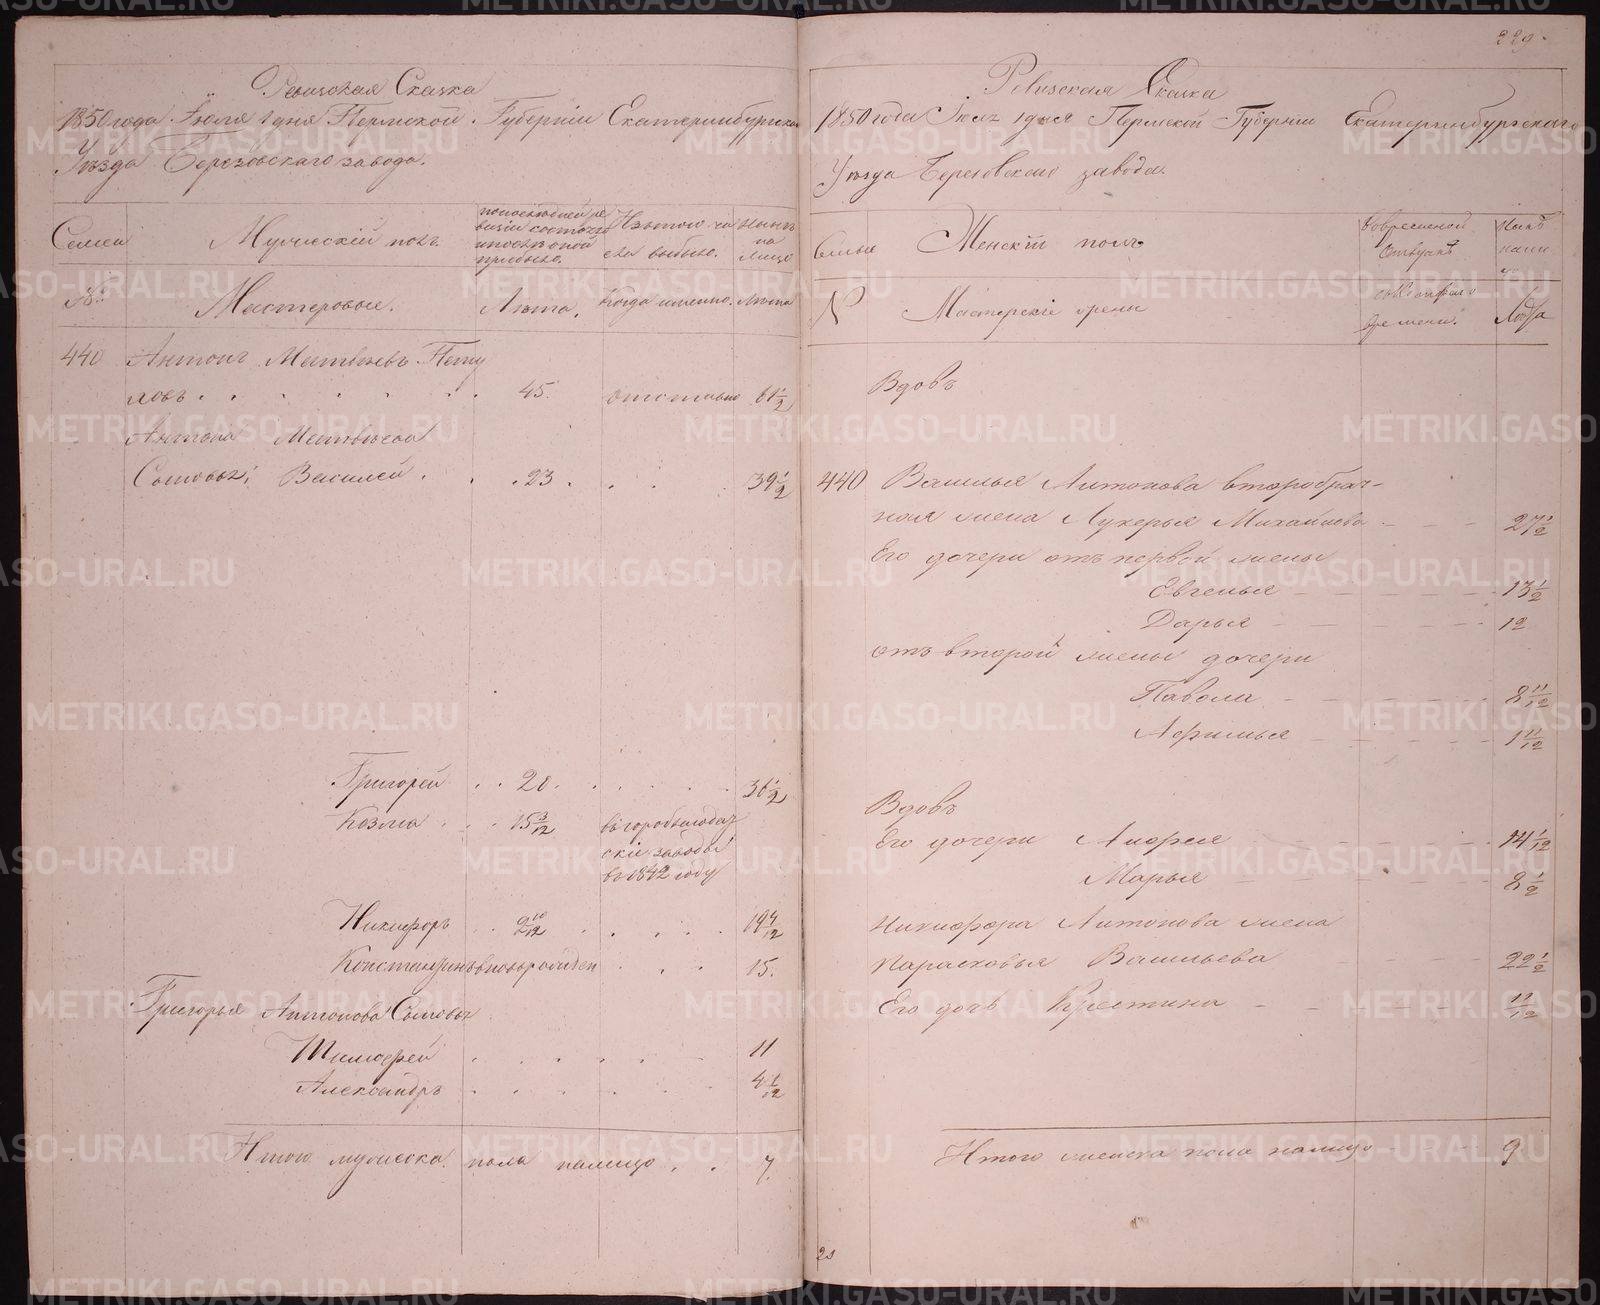 229.
Ревизская Сказка
1850 года Іюля 1 дня Пермской Губерніи Екатеринбургскаго
Уѣзда Березовскаго завода.
Семьи
Мужескій полъ.
по последней ре
визіи состояло
и после оной
прибыло.
Изъ того чи
сла выбыло.
Нынѣ
на
лицо
№
Мастеровые.
Лѣта.
Когда именно.
Лѣта
440 Антонъ Матвѣевъ Пету
ховъ 45. отставно 61 1/2
Антона Матвѣева
Сыновья: Василей 23 39 1/2
Григорей 20 36 1/2
Козма 15 3/12 въ горобла
скіе заводы
въ 1842 году
Никифоръ 2 10/12 19 4/12
Константинъ вновь рожден 15.
Григорья Антонова Сыновья
Тимофей 11
Александръ 4 1/12
Итого мужеска пола налицо 7
Ревизская Сказка
1850 года Іюля 1 дня Пермской Губерніи Екатеринбургскаго
Уѣзда Березовскаго завода.
Семьи
Женскій полъ
Во временной
отлучкѣ
Нынѣ
на ли
цо
№
Мастерскіе жены
съ котораго
времени.
Лѣта
Вдовъ
440 Василья Антонова второбрач-
ная жена Лукерья Михайлова 27 1/2
Его дочери отъ первой жены
Евгенья 13 1/2
Дарья 12
отъ второй жены дочери
Павола 8 11/12
Афимья 1 11/12
Вдовъ
Его дочери Анфея 14 1/12
Марья 8 1/2
Никифора Антонова жена
Парасковья Васильева 22 1/2
Его дочь Крестина 11/12
Итого женска пола налицо 9
METRIKI.GASO-URAL.RU